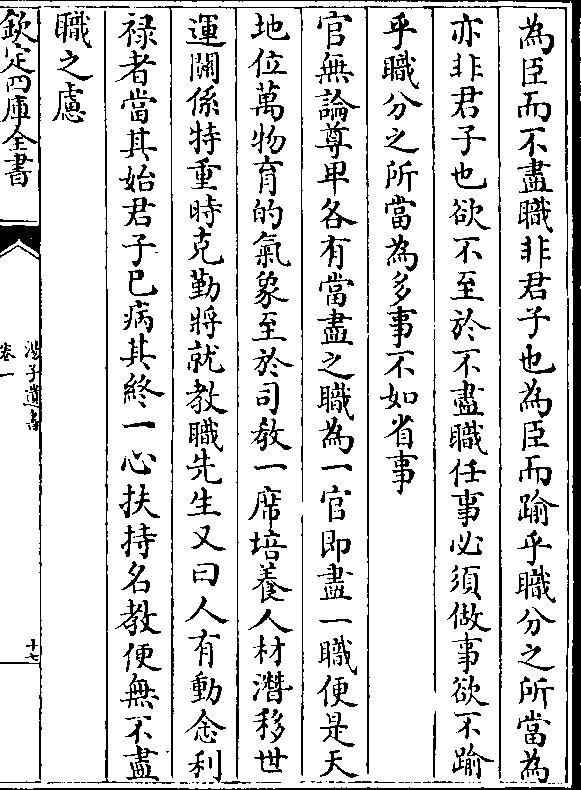 為臣而不盡職非君子也為臣而踰乎職分之所當為
亦非君子也欲不至於不盡職任事必須做事欲不踰
乎職分之所當為多事不如省事
官無論尊卑各有當盡之職為一官即盡一職便是天
地位萬物育的氣象至於司教一席培養人材潛移世
運關係特重時克勤將就教職先生又曰人有動念利
祿者當其始君子已病其終一心扶持名教便無不盡
職之慮
欽定四庫全書
湯子遺書
卷一
十七